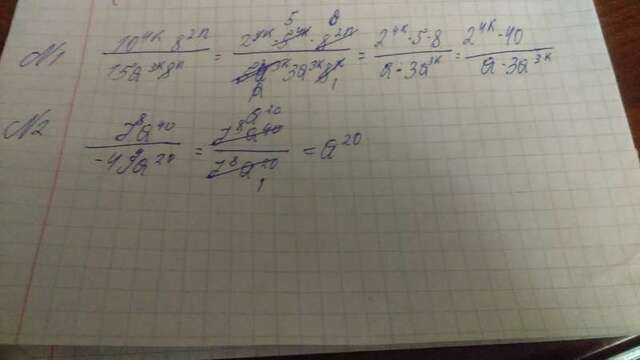 N1 10^4k 8^2n / 15a^3k 8^n = 2^4k · 5^4k · 8^2n / 3a^3k 8^n = 2^4k · 5 · 8 / a · 3a^3k = 2^4k · 40 / a · 3a^3k
N2 7^8 a^40 / -49^4 a^20 = 7^8 a^40 / 7^8 a^20 = a^20